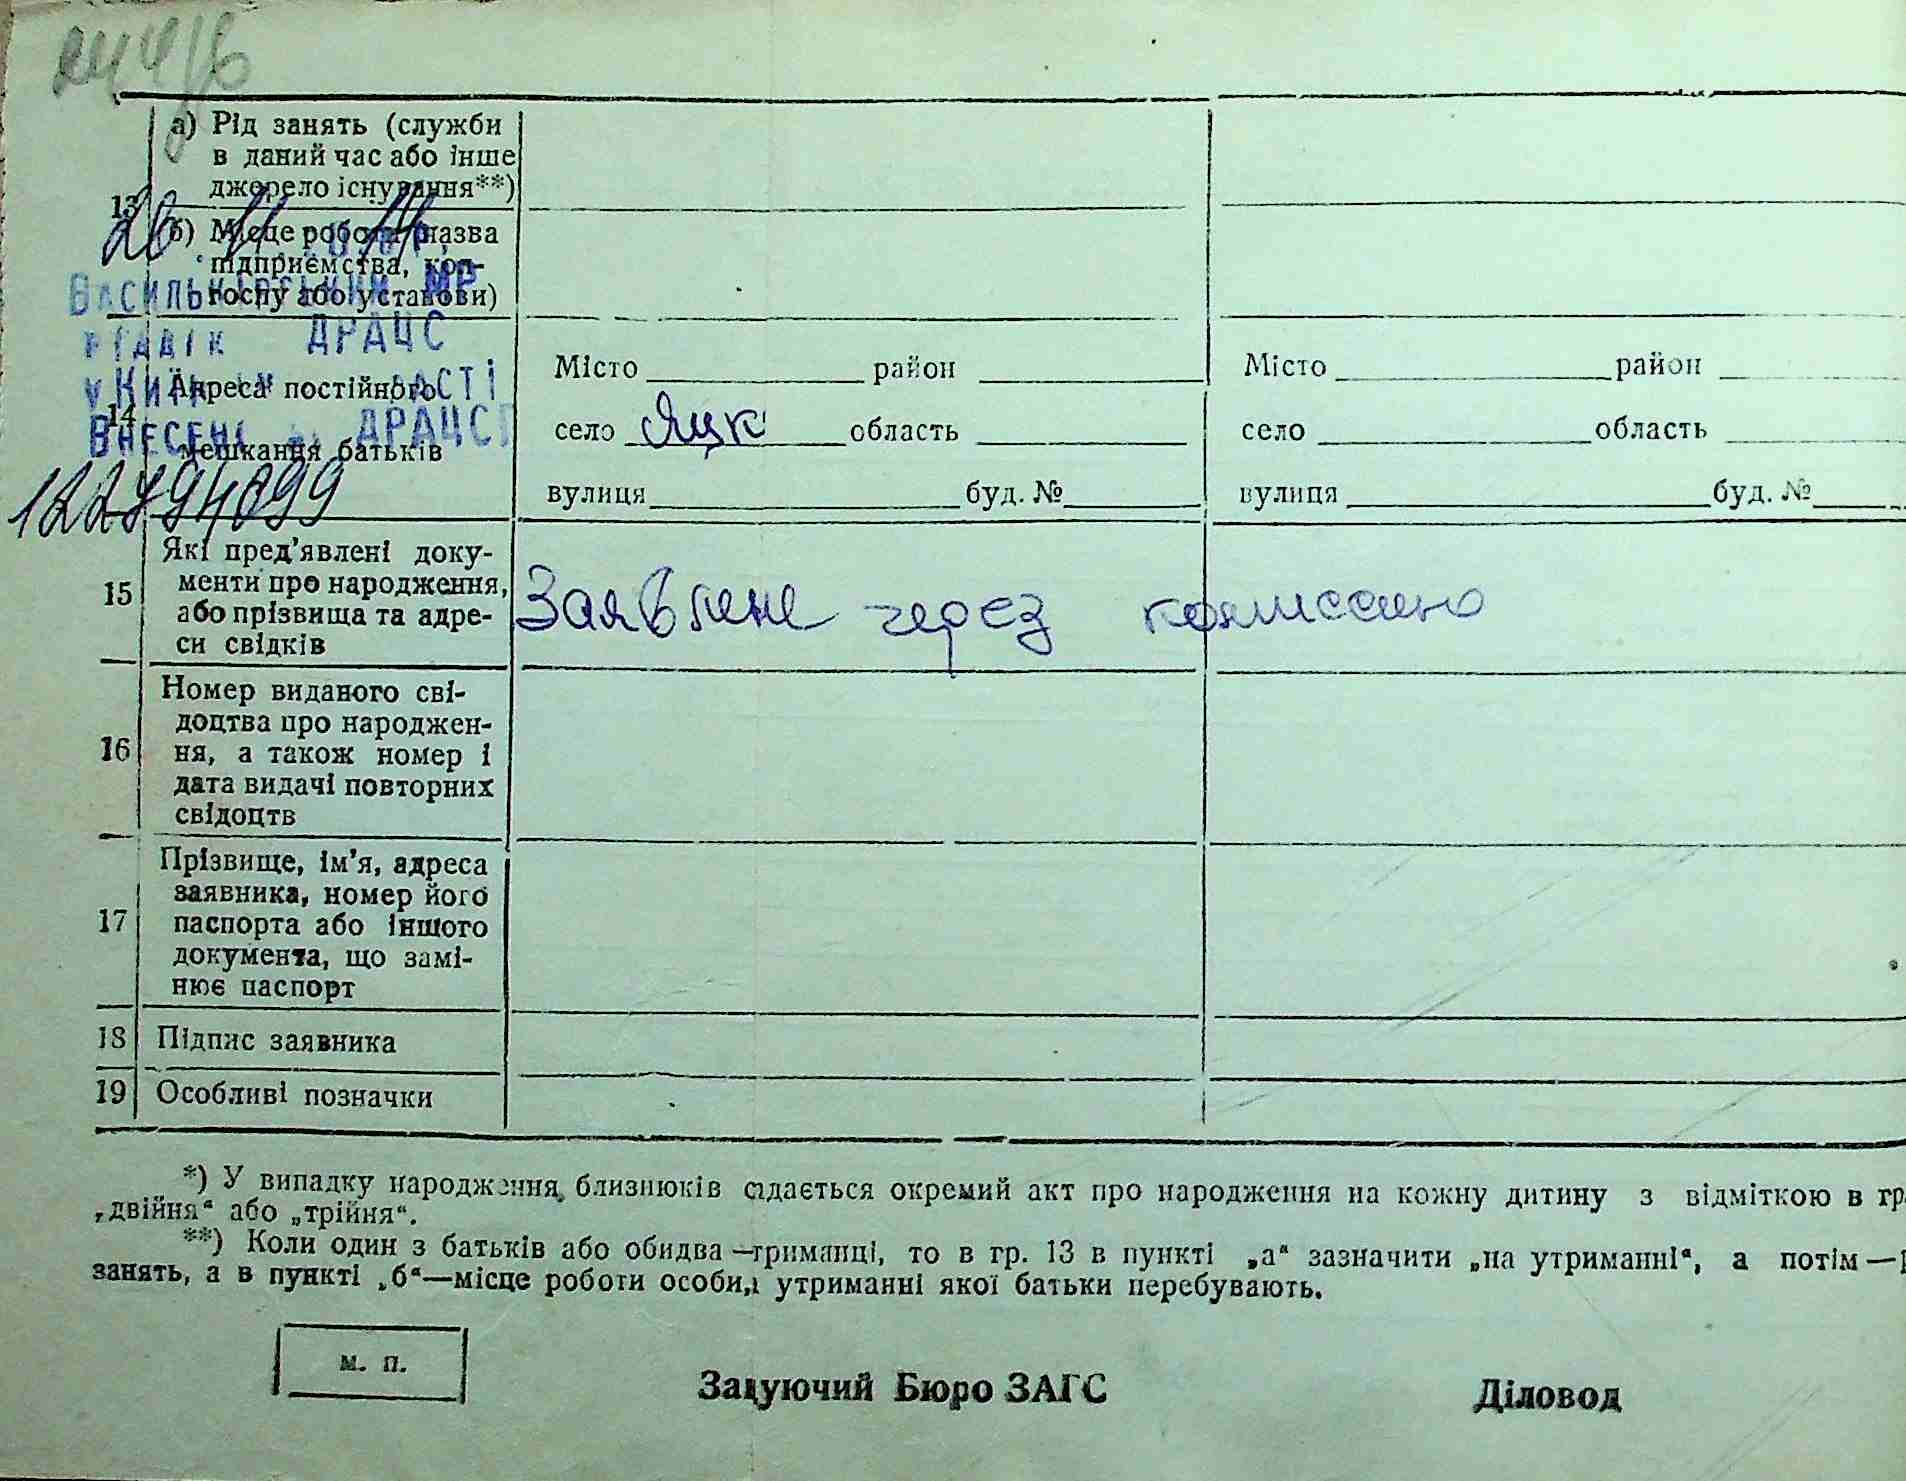 а) Рід занять (служби
в даний час або інше
джерело існування**)
13
б) Місце роботи (назва
підприємства, кол-
госпу або установи)
20 11
ВАСИЛЬКІВСЬКИЙ МР
ВІДДІЛ ДРАЦС
У КИЇВ
ВНЕСЕНО ДРАЦС
122794099
14
Адреса постійного
мешкання батьків
Місто район
село Яцк область
вулиця буд. №
Місто район
село область
вулиця буд. №
15
Які пред'явлені доку-
менти про народження,
або прізвища та адре-
си свідків
Заявлене через комиссию
16
Номер виданого сві-
доцтва про народжен-
ня, а також номер і
дата видачі повторних
свідоцтв
17
Прізвище, ім'я, адреса
заявника, номер його
паспорта або іншого
документа, що замі-
нює паспорт
18 Підпис заявника
19 Особливі позначки
*) У випадку народження близнюків складається окремий акт про народження на кожну дитину з відміткою в гр.
„двійня“ або „трійня“.
**) Коли один з батьків або обидва —утриманці, то в гр. 13 в пункті „а“ зазначити „на утриманні“, а потім —
занять, а в пункті „б“—місце роботи особи, утриманні якої батьки перебувають.
м. п.
Завідуючий Бюро ЗАГС
Діловод